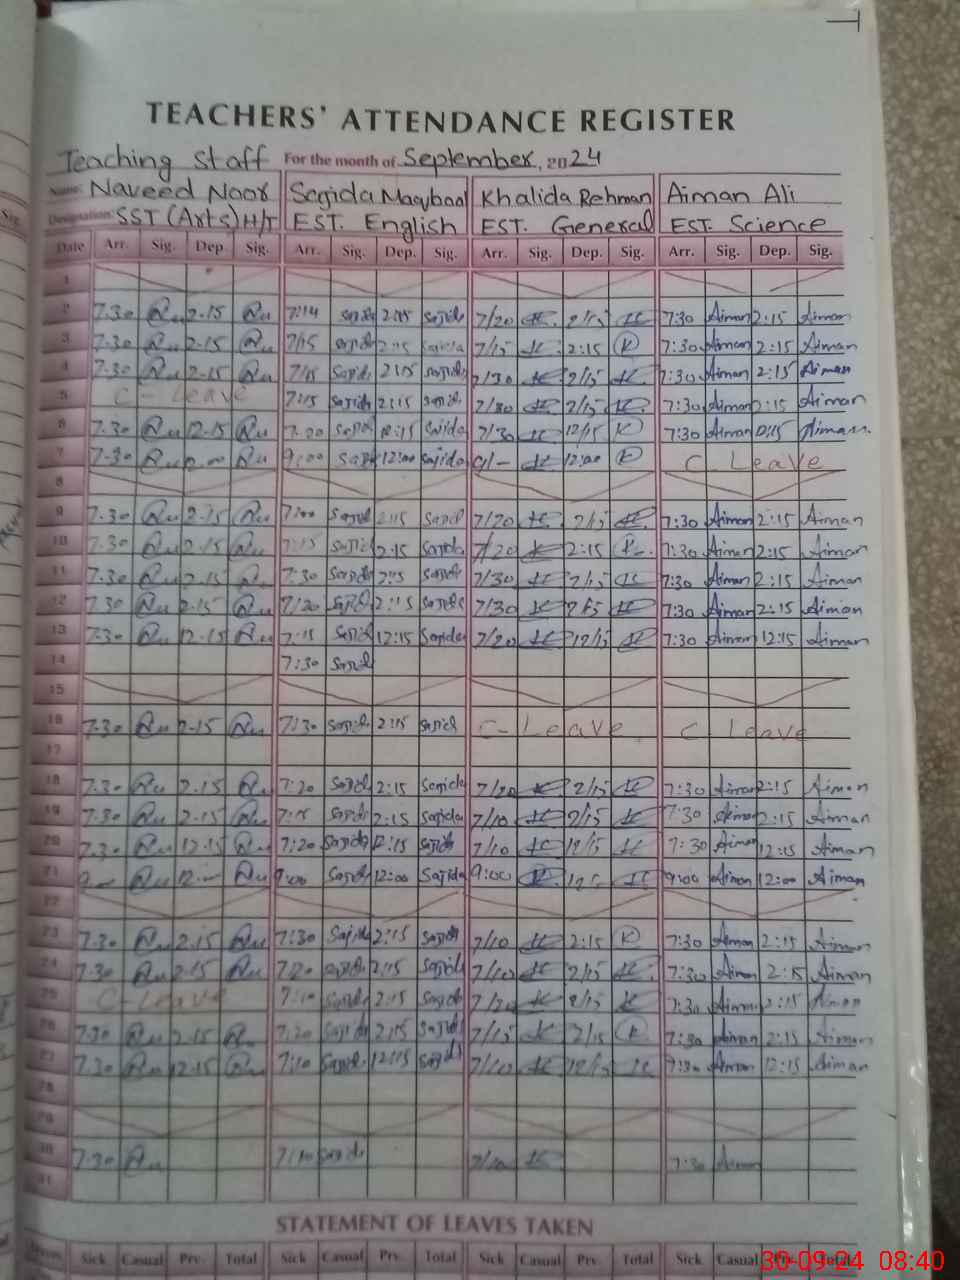 TEACHERS' ATTENDANCE REGISTER
Teaching Staff For the month of September, 2024
Name: Naveed Noor Sajida Maqbool Khalida Rehman Aiman Ali
Designation: SST (Arts) H/T EST. English EST. General EST. Science
Date Arr. Sig. Dep. Sig. Arr. Sig. Dep. Sig. Arr. Sig. Dep. Sig. Arr. Sig. Dep. Sig.
1
2 7.30 2.15 7:14 Sajida 2:15 Sajida 7/20 2/15 7:30 Aiman 2:15 Aiman
3 7.30 2.15 7/15 Sajida 2:15 Sajida 7/15 2:15 K 7:30 Aiman 2:15 Aiman
4 7.30 2.15 7/15 Sajida 2:15 Sajida 7/30 2/15 7:30 Aiman 2:15 Aiman
5 C - Leave 7:15 Sajida 2:15 Sajida 7/30 2/15 7:30 Aiman 2:15 Aiman
6 7.30 12.15 7:00 Sajida 12:15 Sajida 7/30 12/15 K 7:30 Aiman 12:15 Aiman
7 7.30 9:00 Sajida 12:00 Sajida 9/- 12:00 K C Leave
8
9 7.30 2.15 7:00 Sajid 2:15 Sajid 7/20 2/15 7:30 Aiman 2:15 Aiman
10 7.30 2.15 7:15 Sajida 2:15 Sajida 7/20 2:15 K 7:30 Aiman 2:15 Aiman
11 7.30 2.15 7:30 Sajida 2:15 Sajida 7/30 2/15 7:30 Aiman 2:15 Aiman
12 7.30 2.15 7/20 Sajid 2:15 Sajida 7/30 2/15 7:30 Aiman 2:15 Aiman
13 7.30 12.15 7:15 Sajid 12:15 Sajida 7/20 12/15 7:30 Aiman 12:15 Aiman
14 7:30 Sajid
15
16 7.30 2.15 7:30 Sajida 2:15 Sajid C - Leave C Leave
17
18 7.30 2.15 7:20 Sajid 2:15 Sajida 7/20 2/15 7:30 Aiman 2:15 Aiman
19 7.30 2.15 7:15 Sajida 2:15 Sajida 7/10 2/15 7:30 Aiman 2:15 Aiman
20 7.30 12.15 7:20 Sajida 12:15 Sajida 7/10 12/15 7:30 Aiman 12:15 Aiman
21 9 12 9:00 Sajid 12:00 Sajida 9:00 K 9:00 Aiman 12:00 Aiman
22
23 7.30 2.15 7:30 Sajida 2:15 Sajida 7/10 2:15 K 7:30 Aiman 2:15 Aiman
24 7.30 2.15 7:20 Sajida 2:15 Sajida 7/10 2/15 7:30 Aiman 2:15 Aiman
25 C-Leave 7:10 Sajida 2:15 Sajida 7/20 2/15 7:30 Aiman 2:15 Aiman
26 7.30 2.15 7:20 Sajida 2:15 Sajida 7/15 2/15 K 7:30 Aiman 2:15 Aiman
27 7.30 12.15 7:10 Sajida 12:15 Sajida 7/10 12/15 7:30 Aiman 12:15 Aiman
28
29
30 7.30 7/10 Sajida 7/10 7:30 Aiman
31
STATEMENT OF LEAVES TAKEN
Leaves Sick Casual Prv. Total Sick Casual Prv. Total Sick Casual Prv. Total Sick Casual Prv. Total
30-09-24 08:40